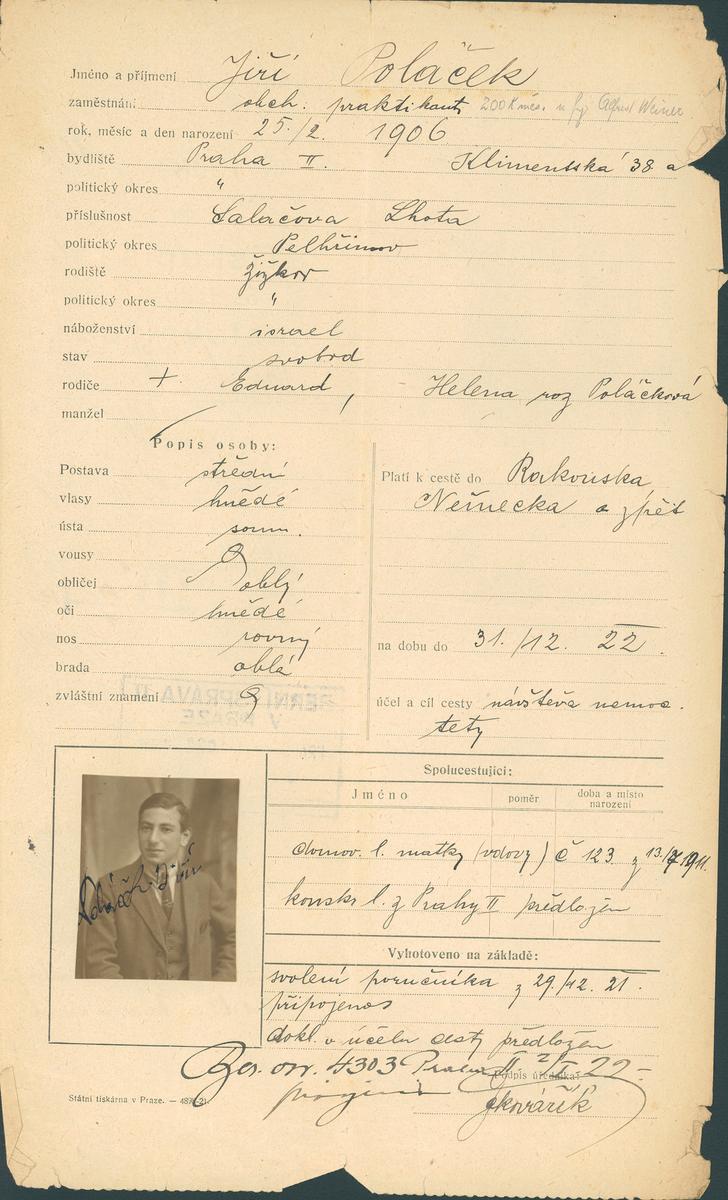 Jméno a příjmení Jiří Poláček
zaměstnán: obch. praktikant 200 K měs. u fy Alfred Weiner
rok, měsíc a den narození 25./2. 1906
bydliště Praha II. Klimentská 38 a
politický okres "
příslušnost Salačova Lhota
politický okres Pelhřimov
rodiště Žižkov
politický okres "
náboženství israel
stav svobod
rodiče + Eduard, Helena roz Poláčková
manžel
Popis osoby:
Postava střední
vlasy hnědé
ústa soum.
vousy
obličej oblý
oči hnědé
nos rovný
brada oblá
zvláštní znamení
Platí k cestě do Rakouska
Německa a zpět
na dobu do 31./12. 22.
účel a cíl cesty návštěva nemoc.
tety
BERNÍ SPRÁVA II
V PRAZE
Poláček Jiří
Spolucestující:
Jméno poměr doba a místo narození
domov. l. matky (vdovy) č 123 z 13./7 1911.
konskr l. z Prahy II předložen
Vyhotoveno na základě:
svolení poručníka z 29./12. 21.
připojenos
dokl. o účelu cesty předložen
4303 Praha II 22
Podpis úředníka:
Kovářík
Státní tiskárna v Praze. — 4874-21.